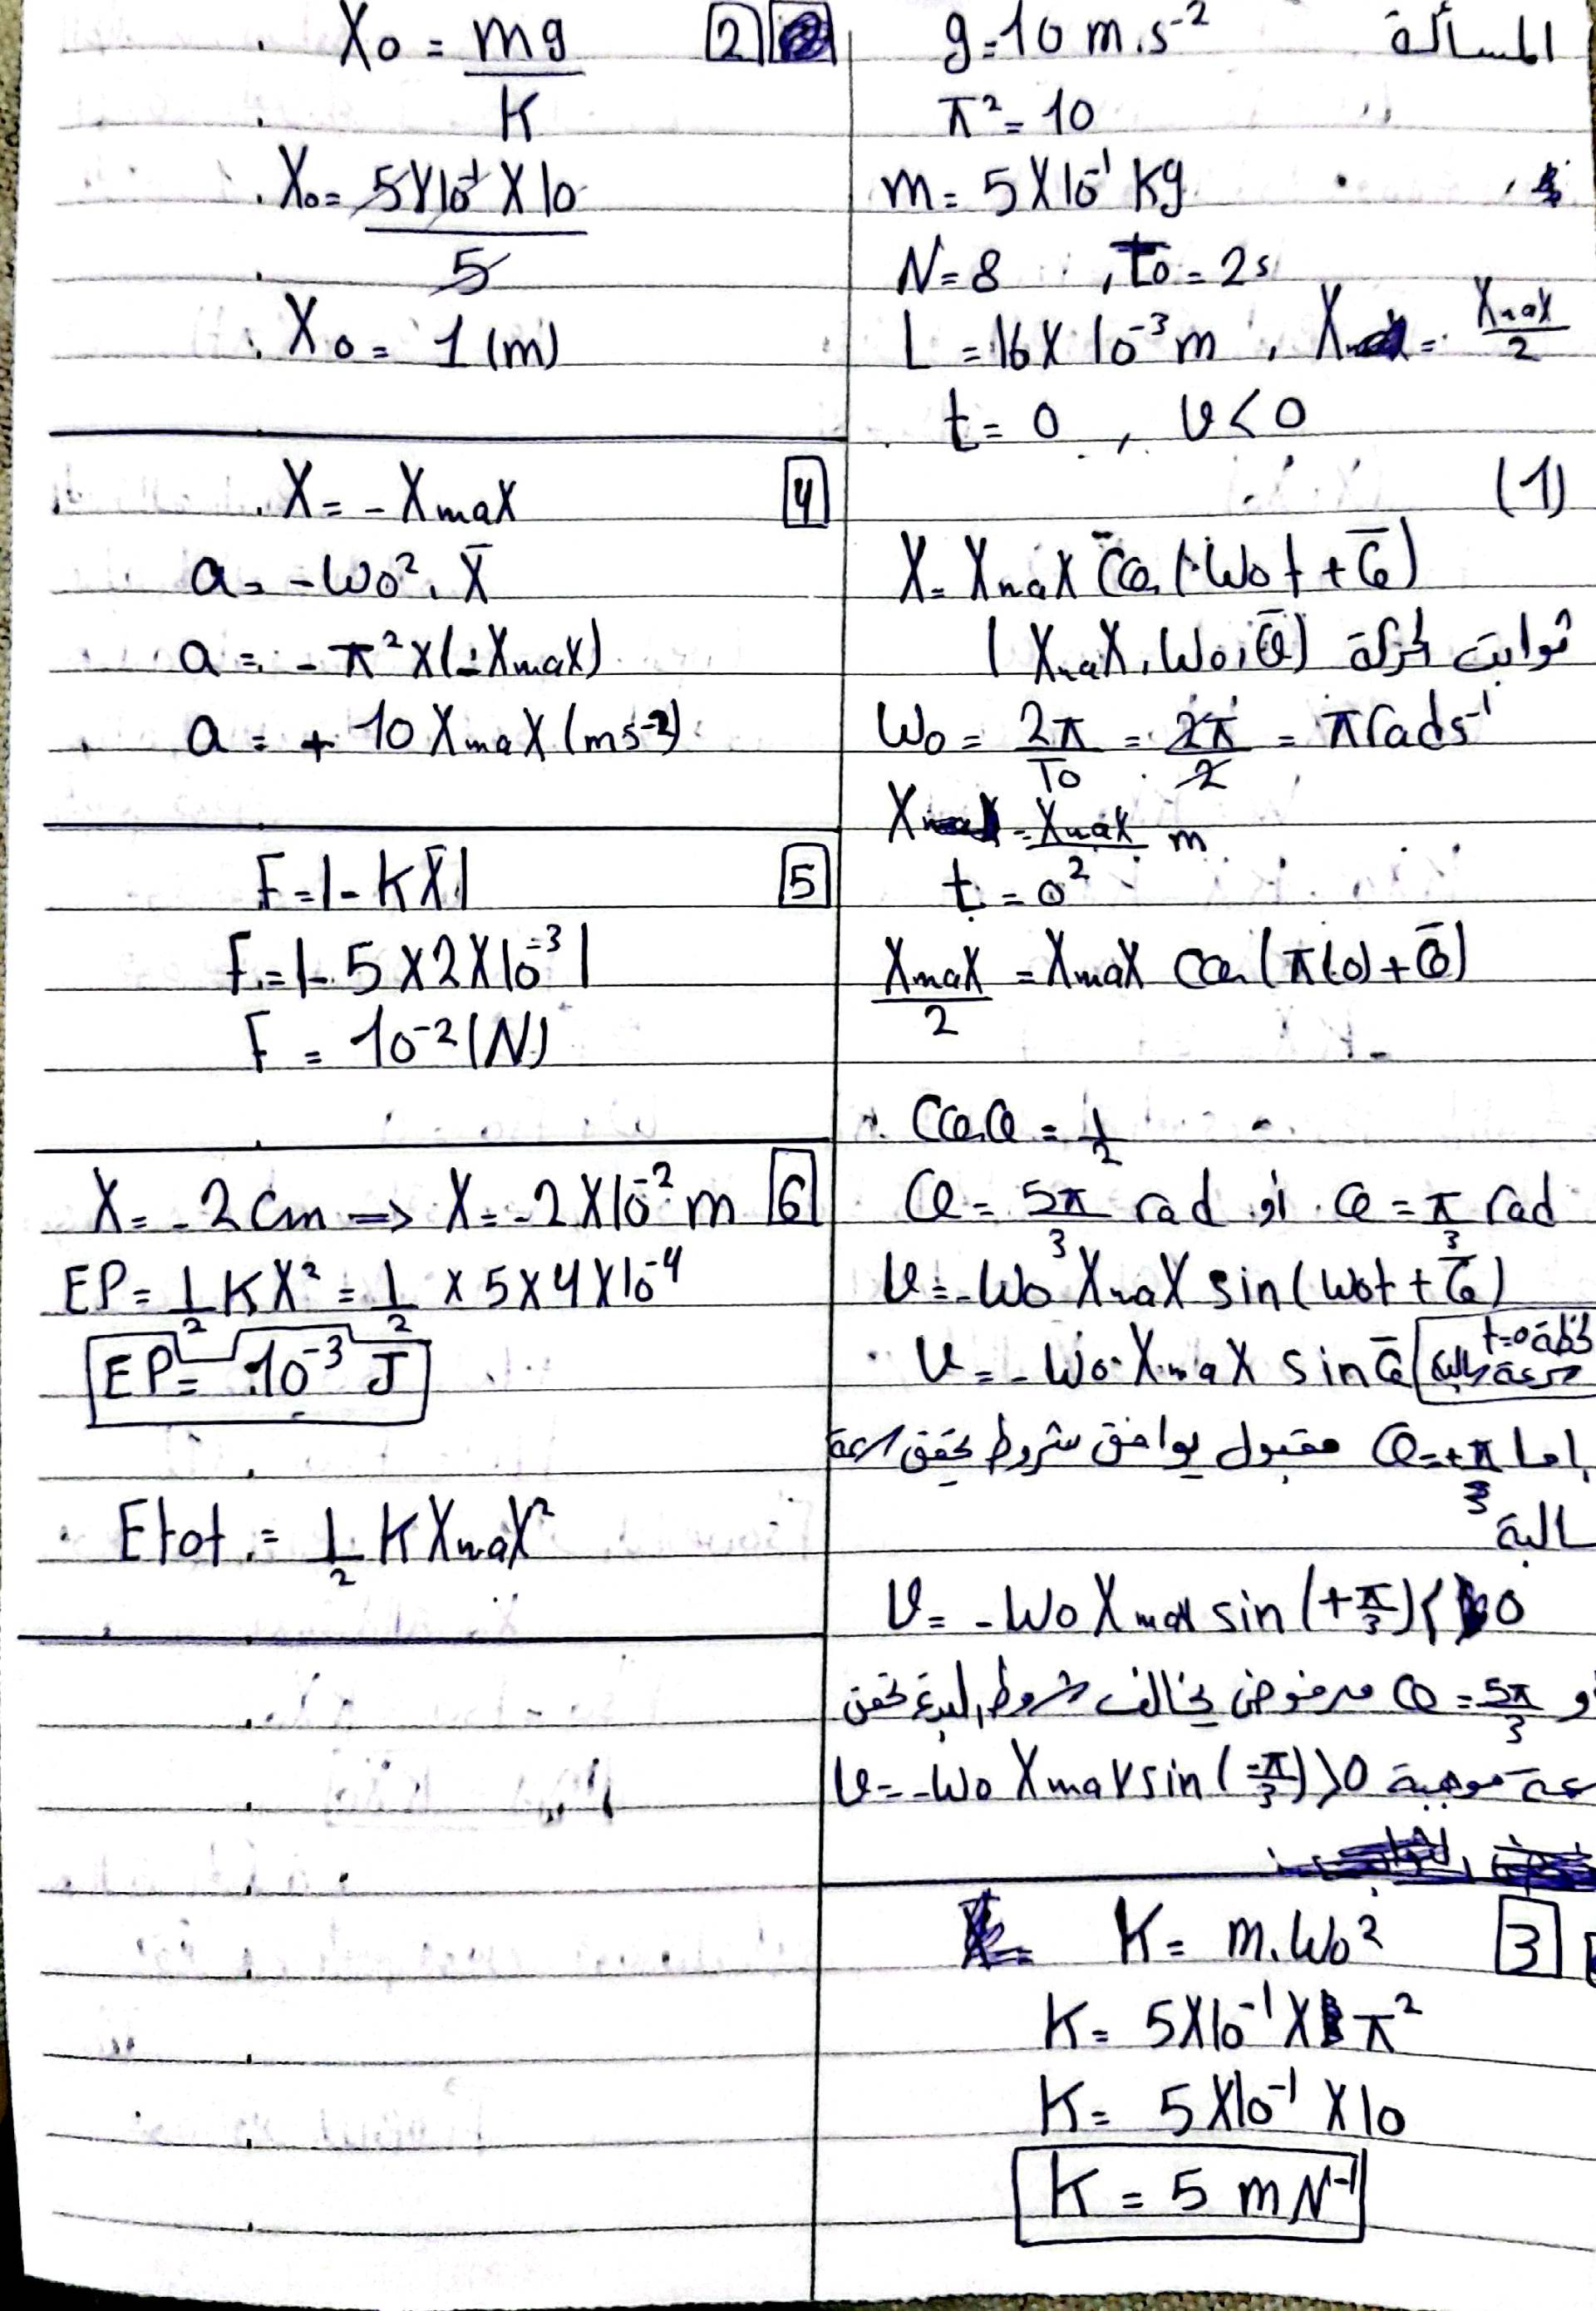 المسألة
g = 10 m.s⁻²
π² = 10
m = 5 X 10⁻¹ Kg
N = 8 , To = 2s
L = 16 X 10⁻³ m , X = Xmax/2
t = 0 , v < 0
(1)
X = Xmax Cos (Wot + φ̄)
ثوابت الحركة (Xmax, Wo, φ̄)
Wo = 2π/To = 2π/2 = π rads⁻¹
X = Xmax/2 m
t = 0
Xmax/2 = Xmax Cos (π(0) + φ̄)
Cosφ = 1/2
φ = π/3 rad أو φ = 5π/3 rad
v = -Wo Xmax sin (Wot + φ̄)
v = -Wo Xmax sin φ̄ لحظة t=0 سرعة سالبة
إما φ = +π/3 مقبول يوافق شروط تحقق سرعة
سالبة
v = -Wo Xmax sin (+π/3) < 0
أو φ = 5π/3 مرفوض يخالف شروط البدء تحقق
سرعة موجبة v = -Wo Xmax sin (-π/3) > 0
3
K = m.Wo²
K = 5X10⁻¹ X π²
K = 5X10⁻¹ X 10
K = 5 mN⁻¹
2
Xo = mg/K
Xo = 5X10⁻¹ X 10/5
Xo = 1 (m)
4
X = - Xmax
a = -Wo² . X̄
a = - π² X (-Xmax)
a = + 10 Xmax (ms⁻²)
5
F = |- K X̄|
F = |- 5 X 2 X 10⁻³|
F = 10⁻² (N)
6
X = -2 Cm => X = -2 X 10⁻² m
EP = 1/2 K X² = 1/2 x 5 X 4 X 10⁻⁴
EP = 10⁻³ J
Etot = 1/2 K Xmax²